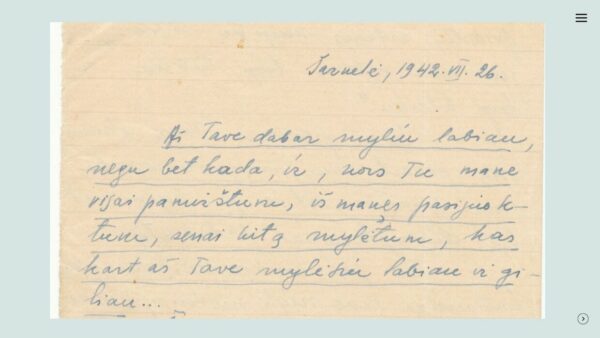 Tarnelė, 1942.VII.26.
Aš Tave dabar myliu labiau,
negu bet kada, ir, nors Tu mane
visai pamirštum, iš manęs pasijuok-
tum, senai kitą mylėtum, kas
kart aš Tave mylėsiu labiau ir gi-
liau...